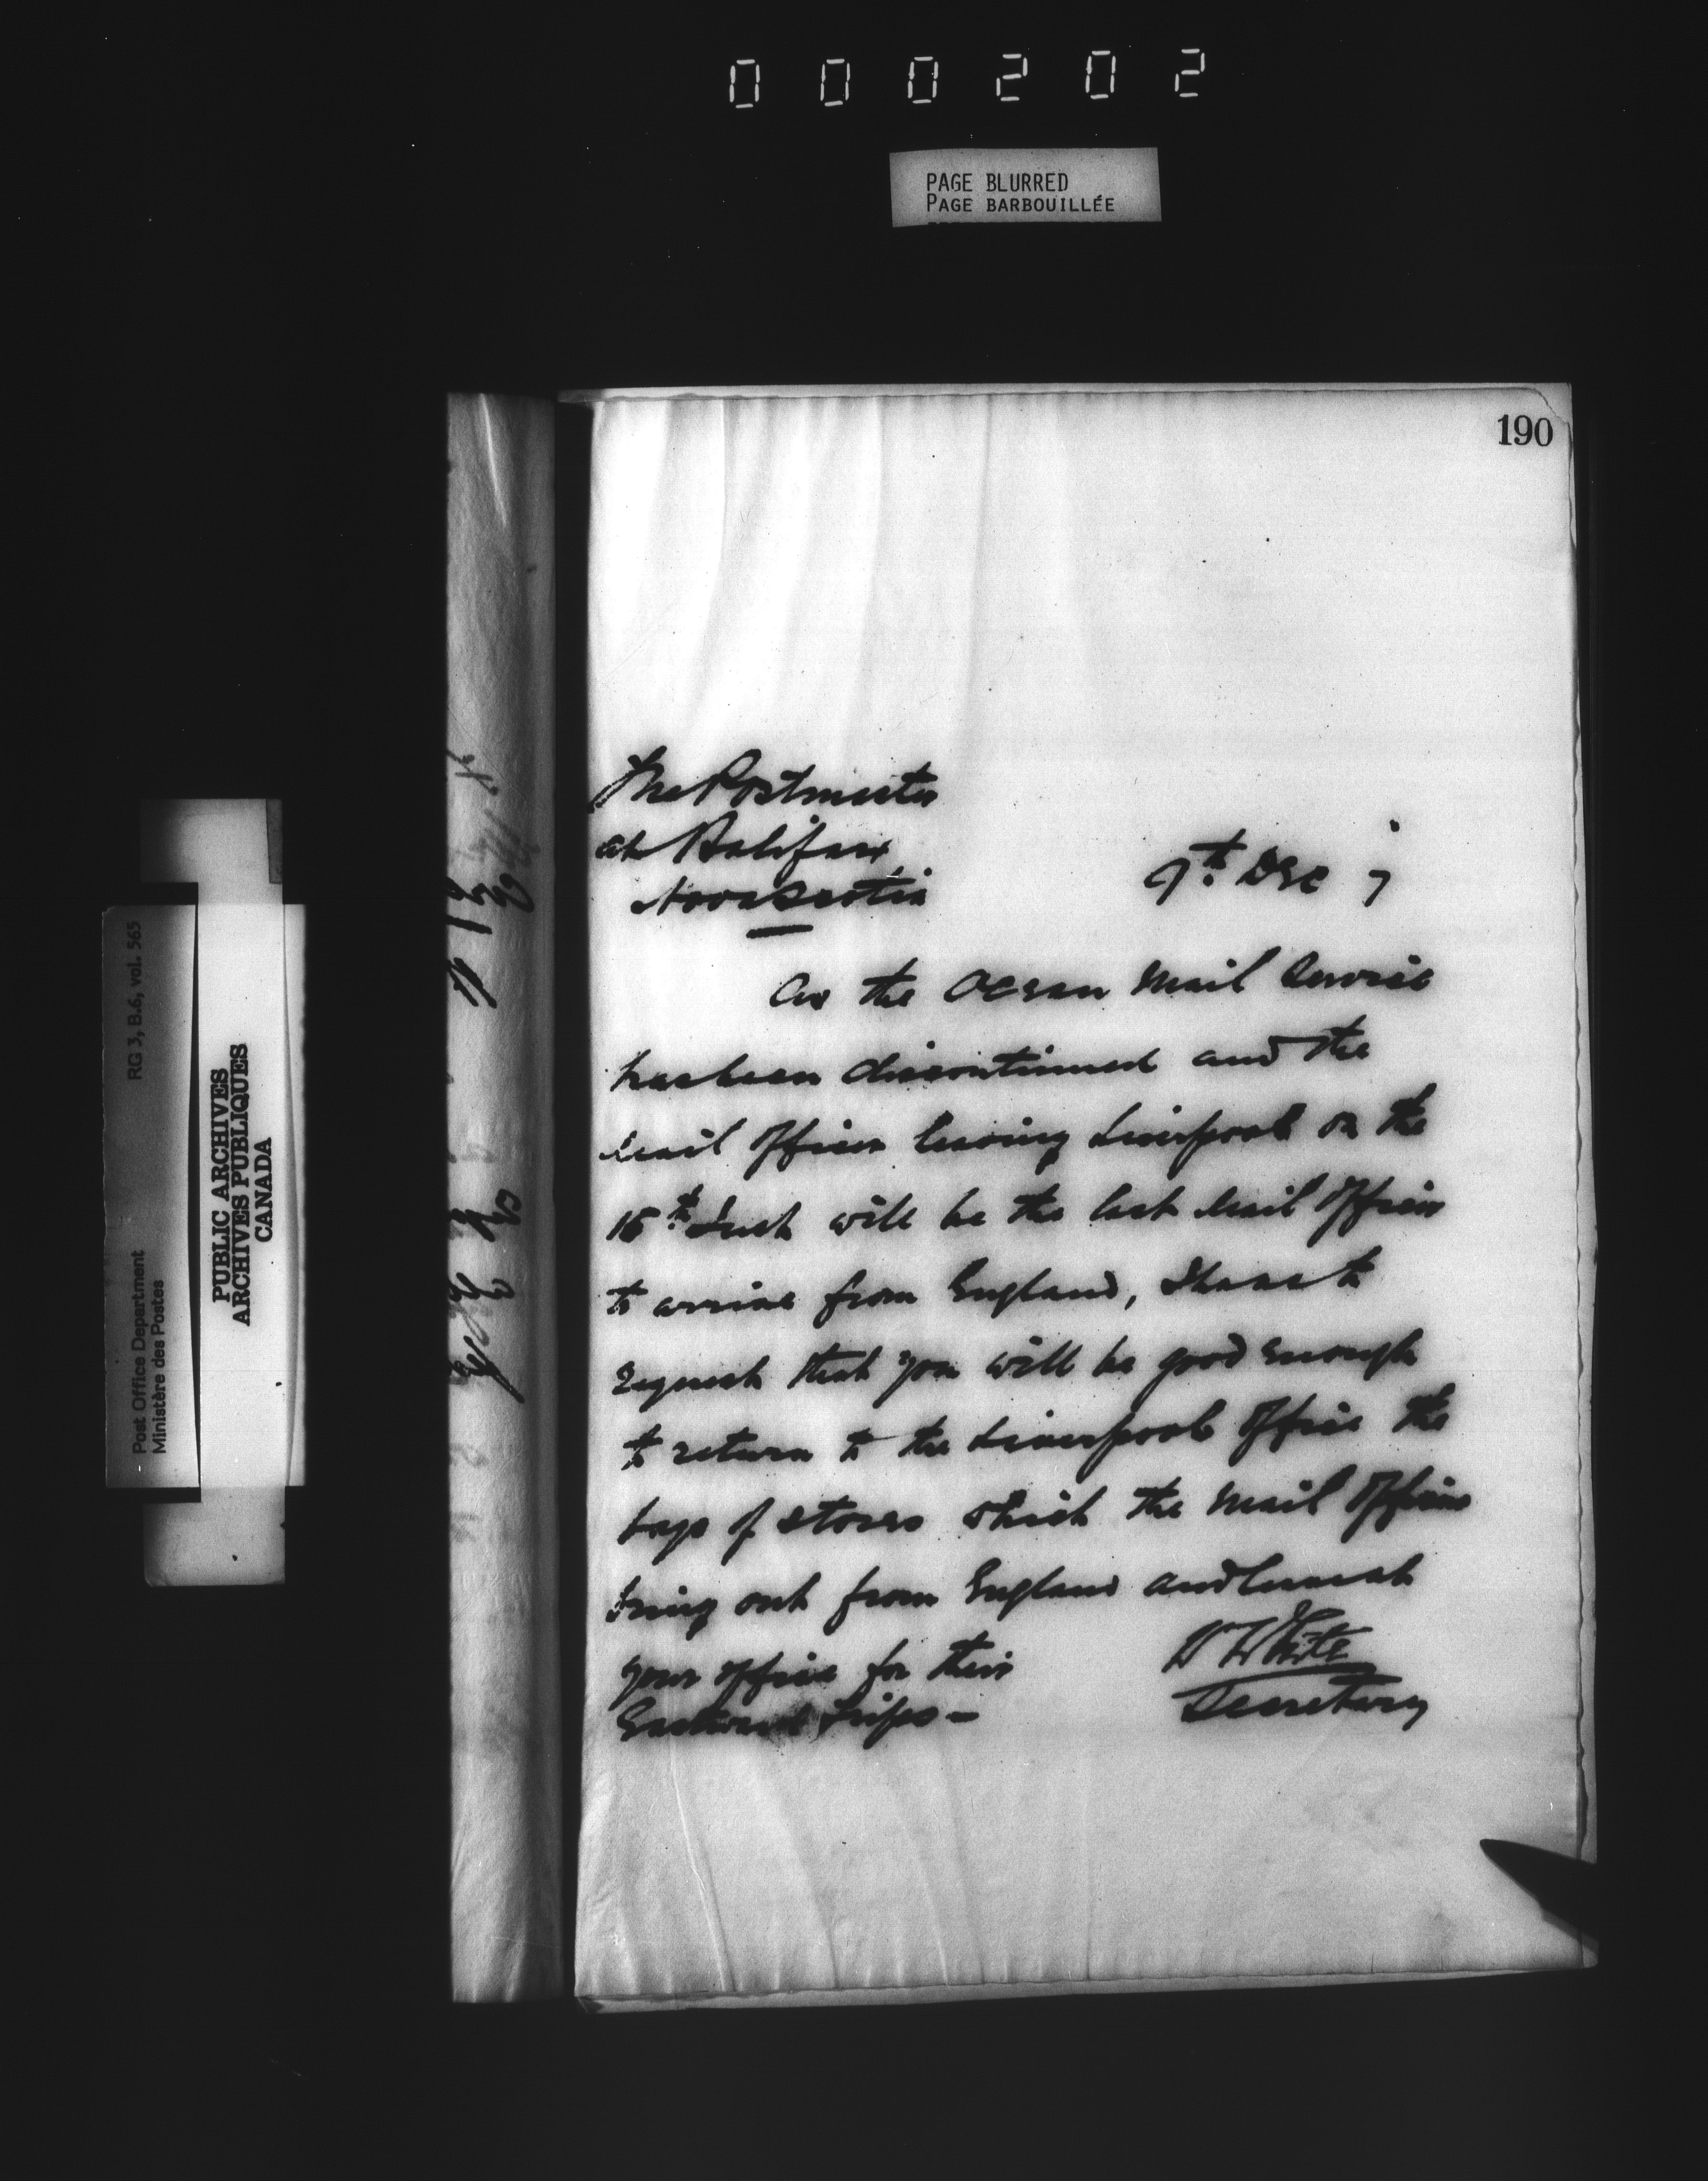 000202
PAGE BLURRED
PAGE BARBOUILLÉE
190
The Postmaster
at Halifax
Nova Scotia
9th. Dec 7
As the Ocean Mail Service
has been discontinued and the
Mail Officer leaving Liverpool on the
15th. Inst will be the last Mail Officer
to arrive from England, I have to
request that you will be good enough
to return to the Liverpool Office the
bags of stores which the Mail Officers
bring out from England and leave at
your office for their
Eastward Trips —
W White
Secretary
RG 3, B.6, vol. 565
Post Office Department
Ministère des Postes
PUBLIC ARCHIVES
ARCHIVES PUBLIQUES
CANADA